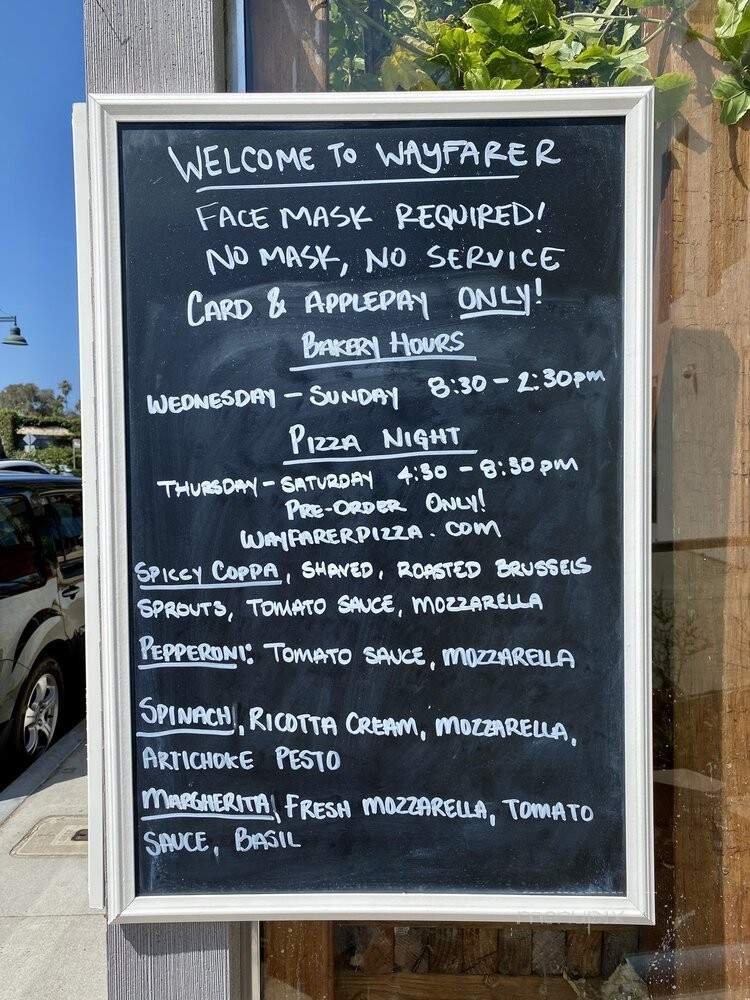 WELCOME TO WAYFARER
FACE MASK REQUIRED!
NO MASK, NO SERVICE
CARD & APPLEPAY ONLY!
BAKERY HOURS
WEDNESDAY - SUNDAY 8:30 - 2:30pm
PIZZA NIGHT
THURSDAY - SATURDAY 4:30 - 8:30 pm
PRE-ORDER ONLY!
WAYFARERPIZZA.COM
SPICCY COPPA, SHAVED, ROASTED BRUSSELS
SPROUTS, TOMATO SAUCE, MOZZARELLA
PEPPERONI: TOMATO SAUCE, MOZZARELLA
SPINACH, RICOTTA CREAM, MOZZARELLA,
ARTICHOKE PESTO
MARGHERITA, FRESH MOZZARELLA, TOMATO
SAUCE, BASIL